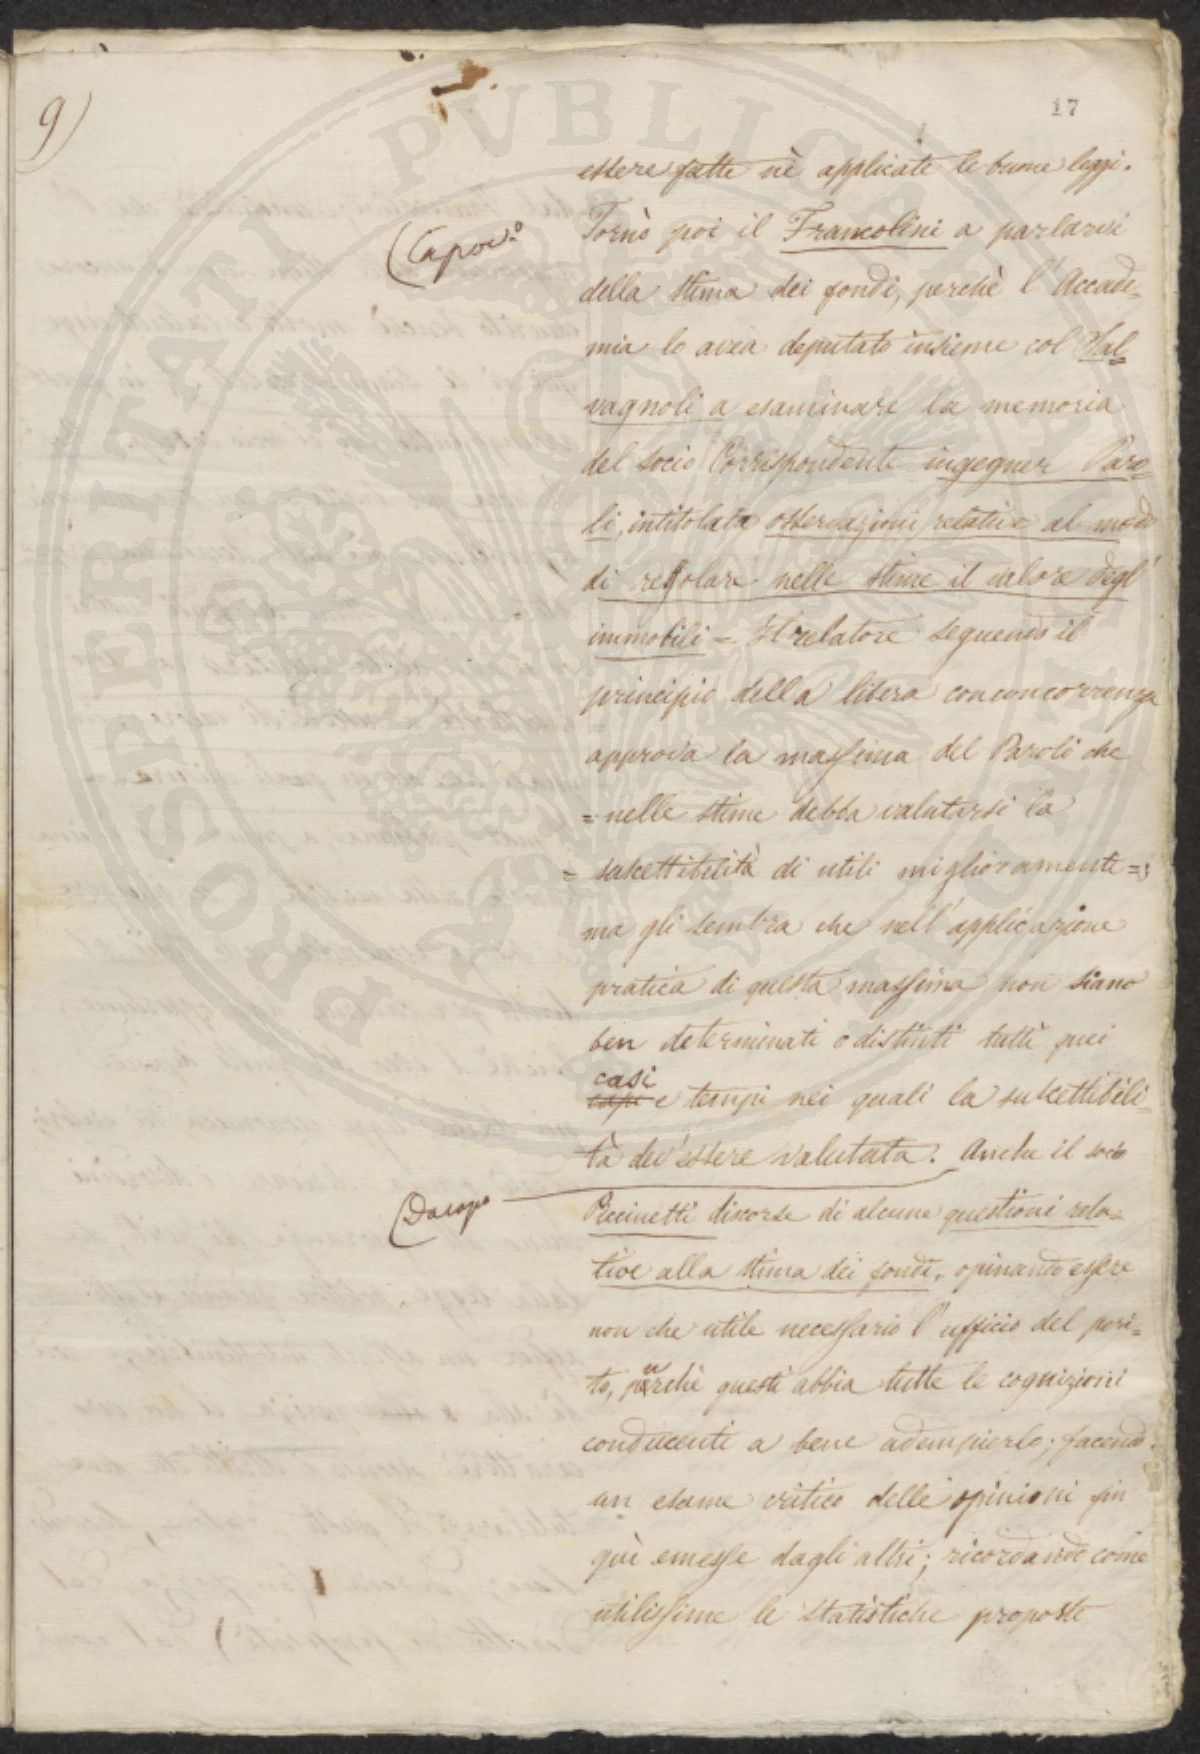 9)
17
essere fatte nè applicate le buone leggi.
(Capov.o
Tornò poi il Francolini a parlarvi
della stima dei fondi, perchè l'Accade=
mia lo avea deputato insieme col Sal=
vagnoli a esaminare la memoria
del socio Corrispondente ingegner Paro=
li, intitolata osservazioni relative al modo
di regolare nelle stime il valore degl'
immobili = Il relatore seguendo il
principio della libera conconcorrenza
approva la massima del Paroli che
= nelle stime debba valutarsi la
= suscettibilità di utili miglioramenti =;
ma gli sembra che nell'applicazione
pratica di questa massima non siano
ben determinati o distinti tutti quei
casi
capi e tempi nei quali la suscettibili=
tà dev'essere valutata. Anche il socio
(Dacapo
Piccinetti discorse di alcune questioni rela=
tive alla stima dei fondi, opinando essere
non che utile necessario l'ufficio del peri=
to, purchè questi abbia tutte le cognizioni
conducenti a bene adempierlo; facendo
un esame critico delle opinioni fin
quì emesse dagli altri; ricordando come
utilissime le statistiche proposte
PROSPERITATI PVBLICAE AVGENDAE